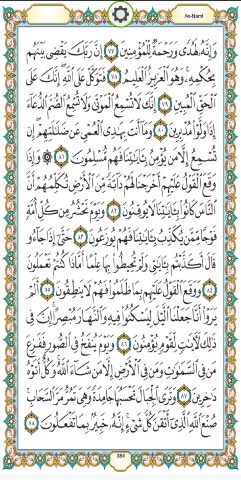 An-Naml
وَإِنَّهُۥ لَهُدًى وَرَحْمَةٌ لِّلْمُؤْمِنِينَ ٧٧ إِنَّ رَبَّكَ يَقْضِى بَيْنَهُم
بِحُكْمِهِۦ ۚ وَهُوَ ٱلْعَزِيزُ ٱلْعَلِيمُ ٧٨ فَتَوَكَّلْ عَلَى ٱللَّهِ ۖ إِنَّكَ عَلَى
ٱلْحَقِّ ٱلْمُبِينِ ٧٩ إِنَّكَ لَا تُسْمِعُ ٱلْمَوْتَىٰ وَلَا تُسْمِعُ ٱلصُّمَّ ٱلدُّعَآءَ
إِذَا وَلَّوْا۟ مُدْبِرِينَ ٨٠ وَمَآ أَنتَ بِهَـٰدِى ٱلْعُمْىِ عَن ضَلَـٰلَتِهِمْ ۖ إِن
تُسْمِعُ إِلَّا مَن يُؤْمِنُ بِـَٔايَـٰتِنَا فَهُم مُّسْلِمُونَ ٨١ ۞ وَإِذَا
وَقَعَ ٱلْقَوْلُ عَلَيْهِمْ أَخْرَجْنَا لَهُمْ دَآبَّةً مِّنَ ٱلْأَرْضِ تُكَلِّمُهُمْ أَنَّ
ٱلنَّاسَ كَانُوا۟ بِـَٔايَـٰتِنَا لَا يُوقِنُونَ ٨٢ وَيَوْمَ نَحْشُرُ مِن كُلِّ أُمَّةٍ
فَوْجًا مِّمَّن يُكَذِّبُ بِـَٔايَـٰتِنَا فَهُمْ يُوزَعُونَ ٨٣ حَتَّىٰٓ إِذَا جَآءُو
قَالَ أَكَذَّبْتُم بِـَٔايَـٰتِى وَلَمْ تُحِيطُوا۟ بِهَا عِلْمًا أَمَّاذَا كُنتُمْ تَعْمَلُونَ
٨٤ وَوَقَعَ ٱلْقَوْلُ عَلَيْهِم بِمَا ظَلَمُوا۟ فَهُمْ لَا يَنطِقُونَ ٨٥ أَلَمْ
يَرَوْا۟ أَنَّا جَعَلْنَا ٱلَّيْلَ لِيَسْكُنُوا۟ فِيهِ وَٱلنَّهَارَ مُبْصِرًا ۚ إِنَّ فِى
ذَٰلِكَ لَـَٔايَـٰتٍ لِّقَوْمٍ يُؤْمِنُونَ ٨٦ وَيَوْمَ يُنفَخُ فِى ٱلصُّورِ فَفَزِعَ
مَن فِى ٱلسَّمَـٰوَٰتِ وَمَن فِى ٱلْأَرْضِ إِلَّا مَن شَآءَ ٱللَّهُ ۚ وَكُلٌّ أَتَوْهُ
دَٰخِرِينَ ٨٧ وَتَرَى ٱلْجِبَالَ تَحْسَبُهَا جَامِدَةً وَهِىَ تَمُرُّ مَرَّ ٱلسَّحَابِ ۚ
صُنْعَ ٱللَّهِ ٱلَّذِىٓ أَتْقَنَ كُلَّ شَىْءٍ ۚ إِنَّهُۥ خَبِيرٌۢ بِمَا تَفْعَلُونَ ٨٨
384